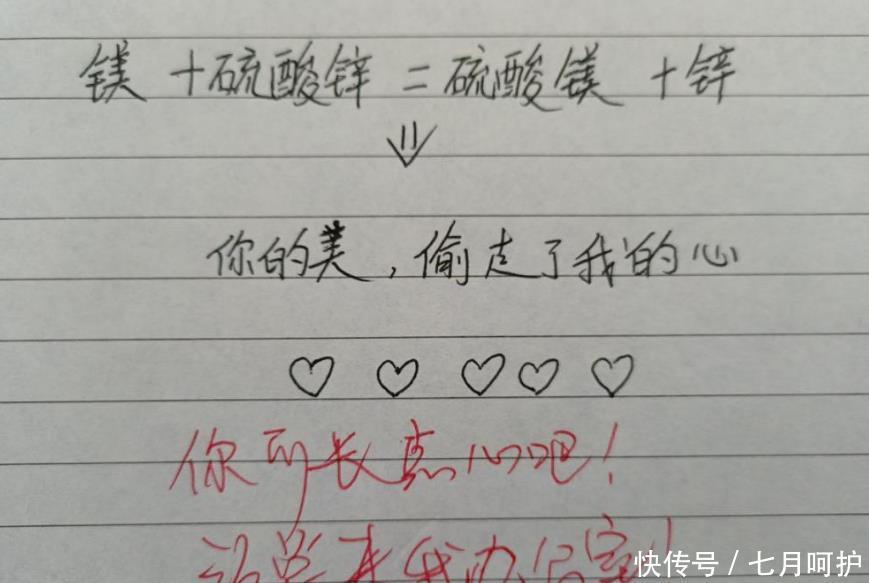 镁+硫酸锌=硫酸镁+锌
你的美,偷走了我的心
你可长点心吧!
我办公室!
快传号/七月呵护